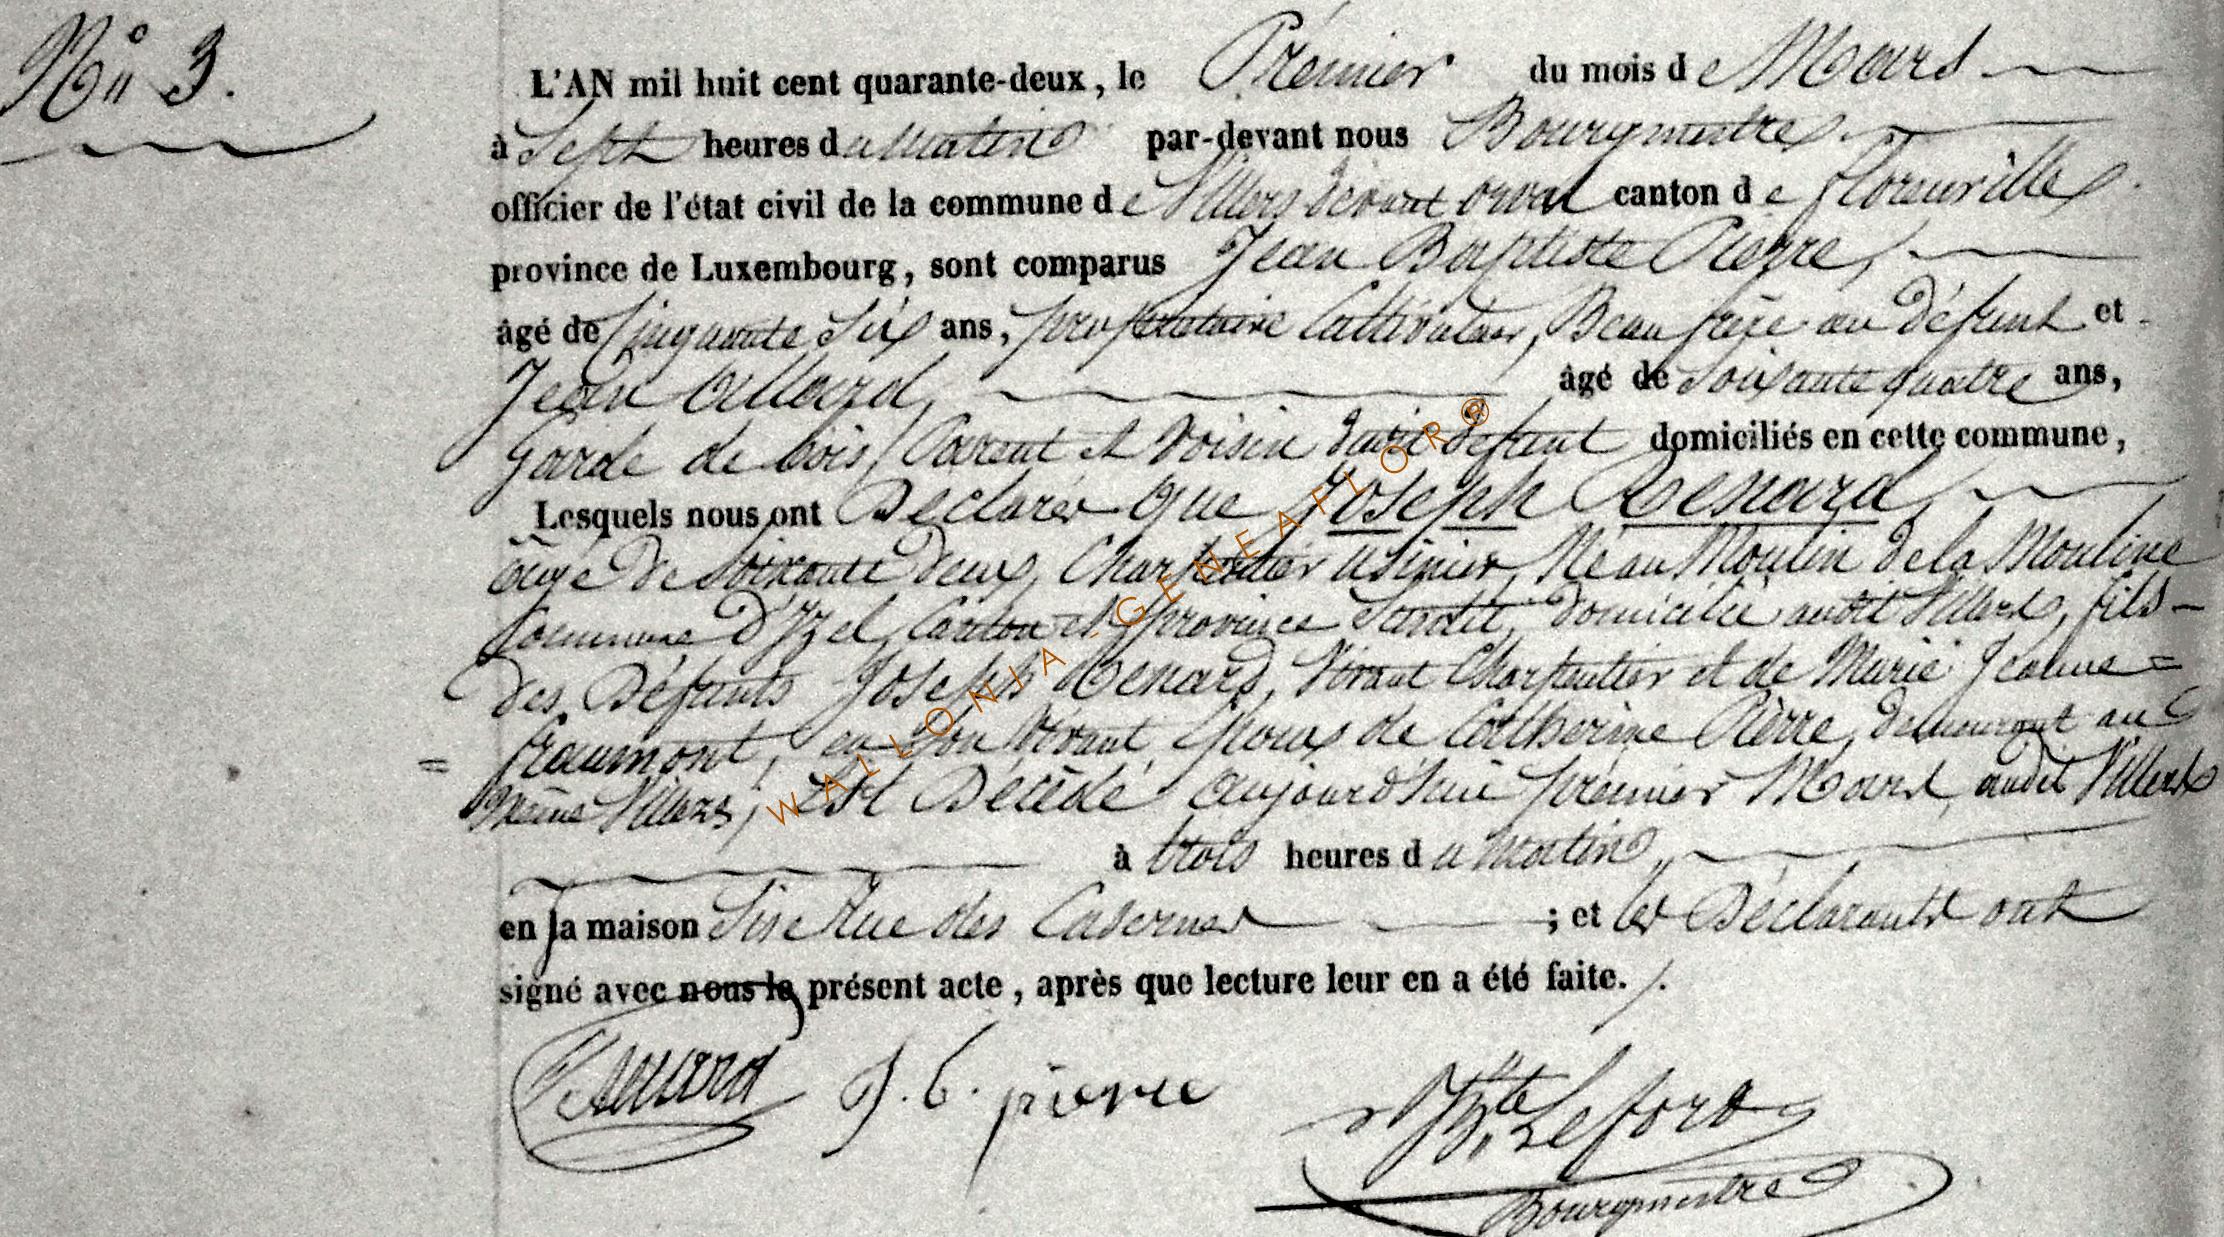 No 3.
L'AN mil huit cent quarante-deux, le Prémier du mois de Mars
à Sept heures du Matin par-devant nous Bourgmestre
officier de l'état civil de la commune de Villers devant orval canton de florenville
province de Luxembourg, sont comparus Jean Baptiste Pierre,
âgé de Cinquante Six ans, propriétaire Cultivateur, Beau frère au défunt et
Jean Allard, âgé de Soixante quatre ans,
garde de bois, Parent et Voisin dudit défunt domiciliés en cette commune,
Lesquels nous ont Déclarér que Joseph Renard,
âgé de Soixante deux, Charpentier usinier, Né au Moulin de la Mouline
Commune d'Izel, Canton et province Susdit, domicilié audit Villers, fils
des Défunts Joseph Renard, Vivant Charpentier et de Marie Jeanne =
= fraumont, en son Vivant Epoux de Catherine Pierre, demeurant au
même Villers, Est Décédé aujourd'hui prémier Mars, audit Villers
à trois heures du Matin,
en la maison Sise Rue des Casernes ; et les Déclarants ont
signé avec nous le présent acte, après que lecture leur en a été faite. /.
J. b. pierre
Bte Lefort
Bourgmestre
WALLONIA-GENEAFLOR®